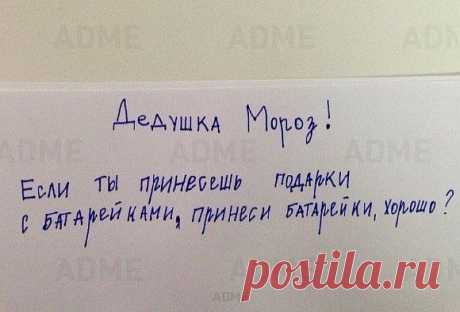 ADME
ADME
Дедушка Мороз!
ADME
ADME
ADME
Если ты принесешь подарки
с батарейками, принеси батарейки, хорошо?
ADME
ADME
ADME
postila.ru